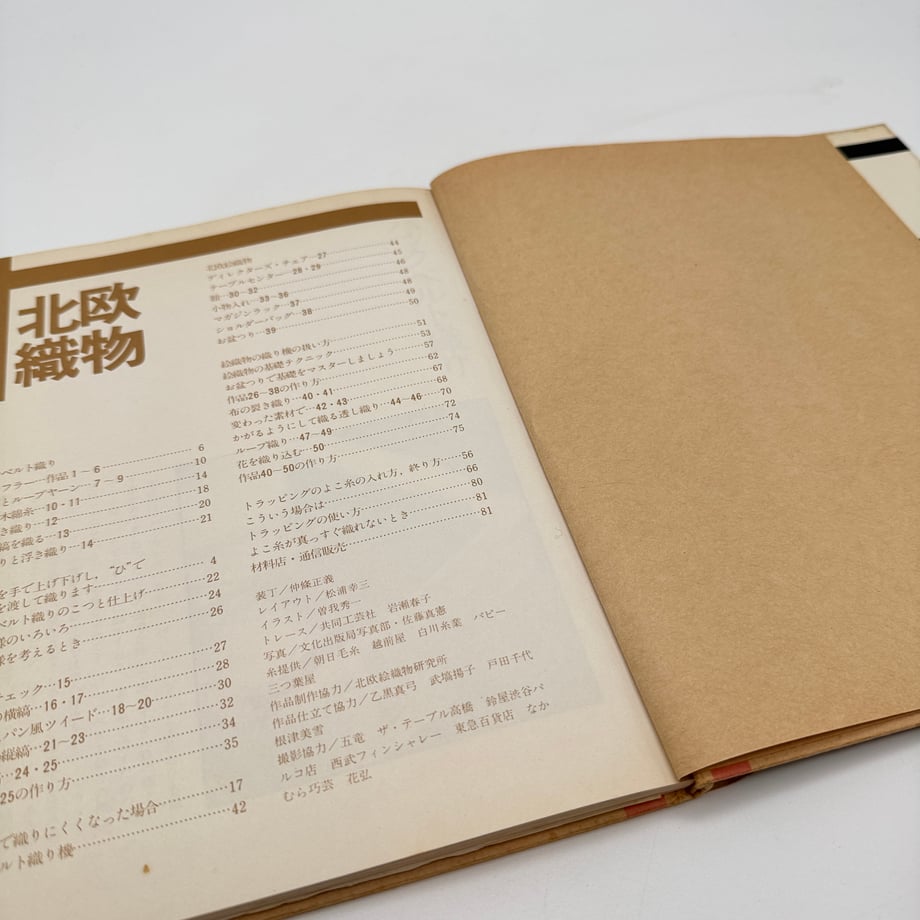 北欧
織物
ベルト織り 6
フラー…作品1～6 10
とループヤーン…7～9 14
木綿糸…10・11 18
き織り…12 20
縞を織る…13 21
りと浮き織り…14
を手で上げ下げし，“ひ”で
を渡して織ります 22
ベルト織りのこつと仕上げ 24
様のいろいろ 26
様を考えるとき
チェック…15 27
の横縞…16・17 28
パン風ツイード…18～20 30
縦縞…21～23 32
…24・25 34
25の作り方 35
で織りにくくなった場合 17
ルト織り機 42
北欧絵織物 44
ディレクターズ・チェア…27 45
テーブルセンター…28・29 46
額…30～32 48
小物入れ…33～36 48
マガジンラック…37 49
ショルダーバッグ…38 50
お盆つり…39
絵織物の織り機の扱い方 51
絵織物の基礎テクニック 53
お盆つりで基礎をマスターしましょう 57
作品26～38の作り方 62
布の裂き織り…40・41 67
変わった素材で…42・43 68
かがるようにして織る透し織り…44～46 70
ループ織り…47～49 72
花を織り込む…50 74
作品40～50の作り方 75
トラッピングのよこ糸の入れ方，終り方 56
こういう場合は 66
トラッピングの使い方 80
よこ糸が真っすぐ織れないとき 81
材料店・通信販売 81
装丁／仲條正義
レイアウト／松浦幸三
イラスト／曽我秀一
トレース／共同工芸社　岩瀬春子
写真／文化出版局写真部・佐藤真憲
糸提供／朝日毛糸　越前屋　白川糸業　パピー
三つ葉屋
作品制作協力／北欧絵織物研究所
作品仕立て協力／乙黒真弓　武塙揚子　戸田千代
根津美雪
撮影協力／五竜　ザ・テーブル高橋　鈴屋渋谷パ
ルコ店　西武フィンシャレー　東急百貨店　なか
むら巧芸　花弘